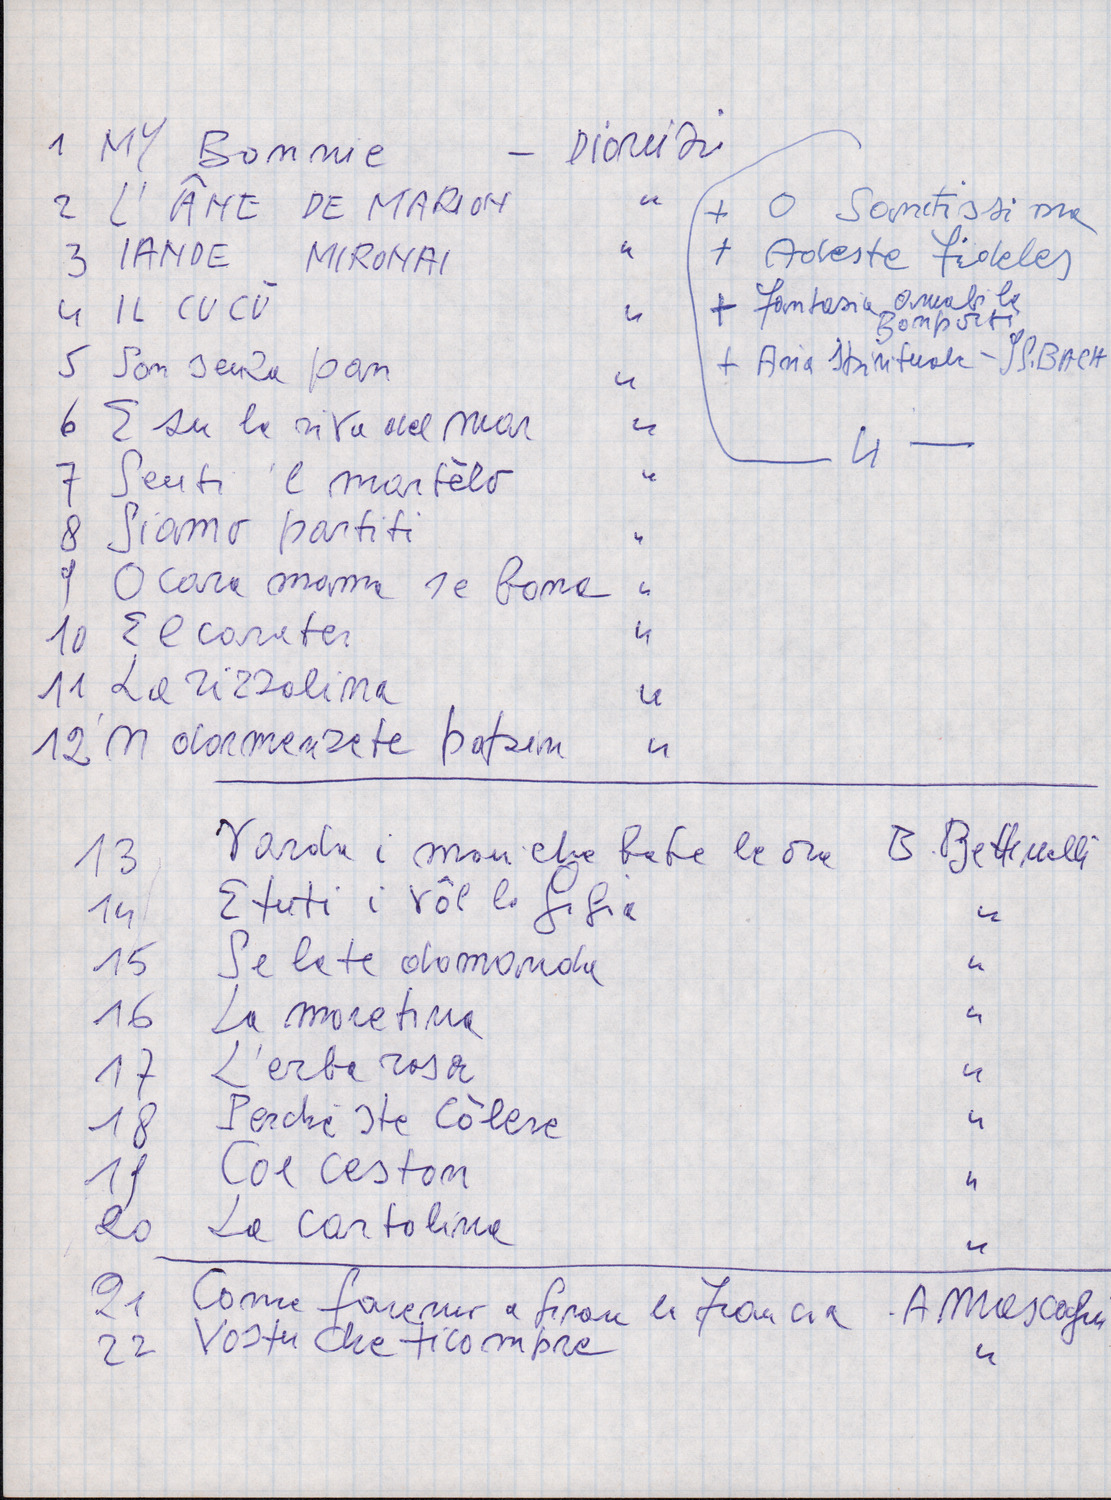 1 MY Bonnie - Dionisi
2 L' ÂME DE MARION "
3 IANDE MIRONAI "
4 IL CUCÙ "
5 Son senza pan "
6 E su la riva del mar "
7 Senti 'l martèlo "
8 Siamo partiti "
9 O cara mama se bona "
10 El carater "
11 La rizzolina "
12 'N dormenzete popin "
+ O Sanctissima
+ Adeste Fideles
+ Fantasia amabile
Bonporti
+ Aria Spirituale - J.S. BACH
4 —
13 Varda i mori che bate le ore B. Bettinelli
14 E tuti i vôl la Gigia "
15 Se la te domanda "
16 La moretina "
17 L'erba rosa "
18 Perchè ste còlere "
19 Col ceston "
20 La cartolina "
21 Come faremo a girar la Francia . A Mascagni
22 Vostu che ti compre "